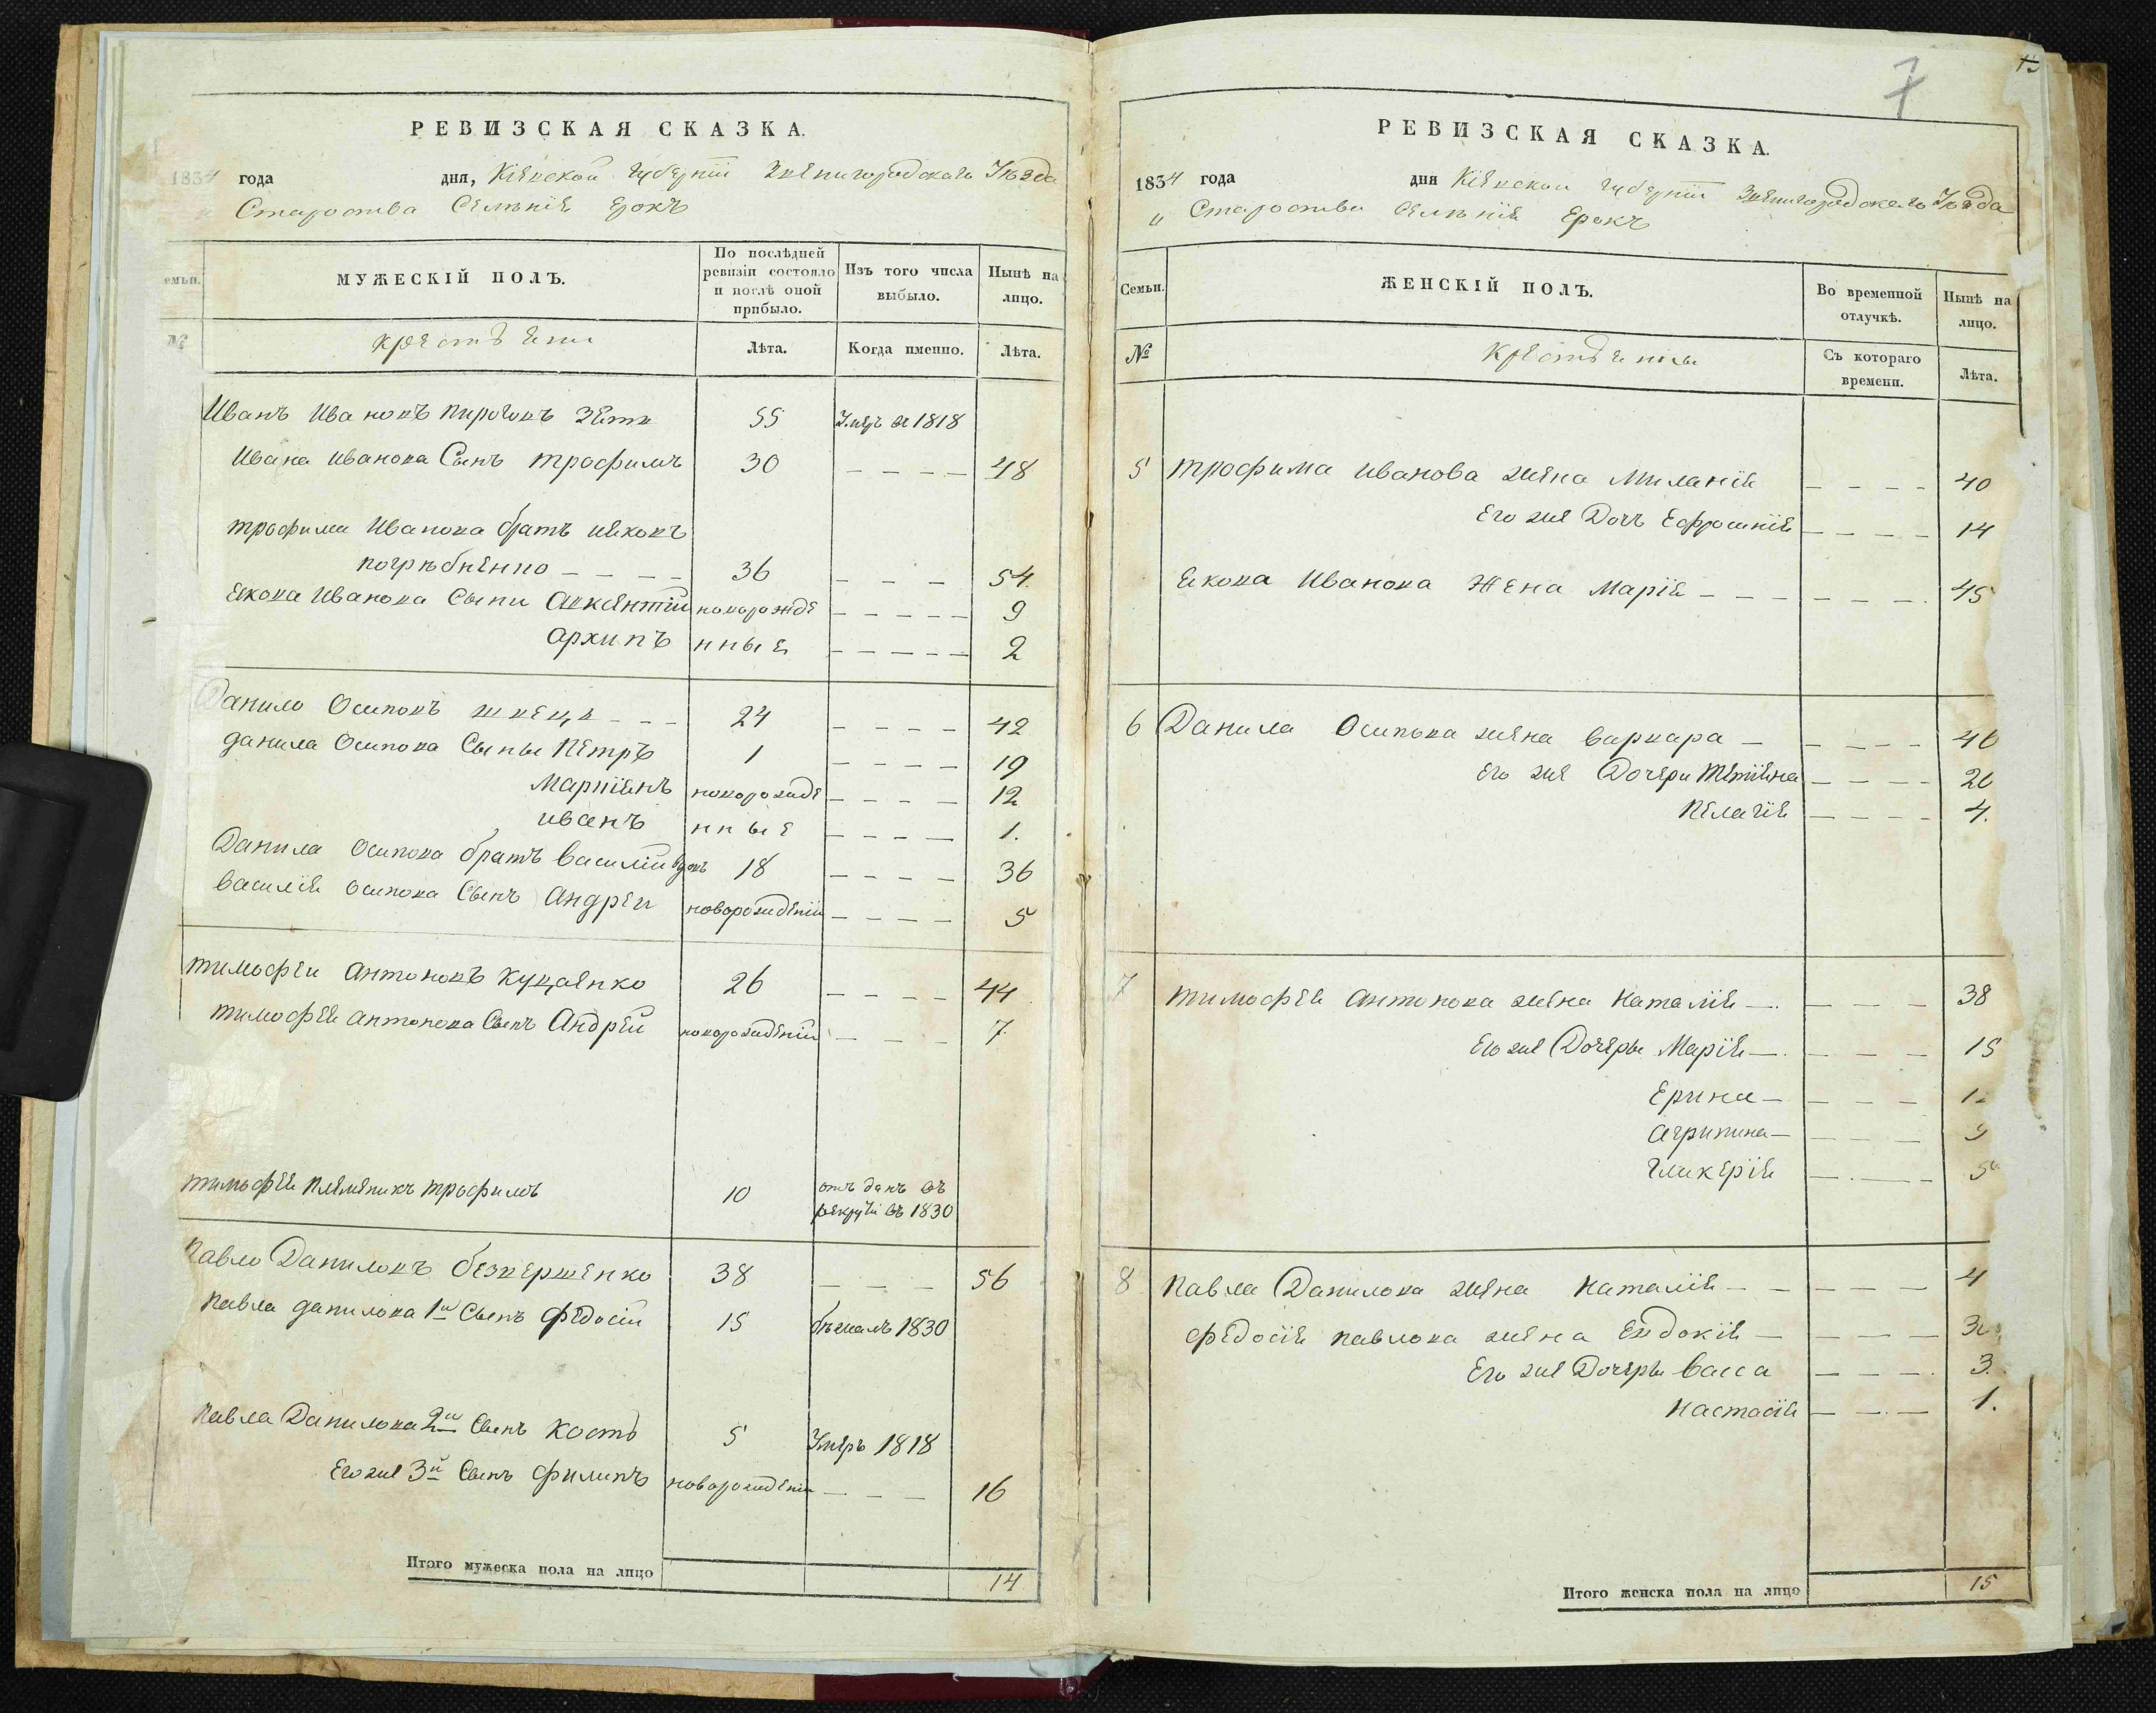 РЕВИЗСКАЯ СКАЗКА.
1834 года дня, Кіевской Губерніи Звенигородскаго Уѣзда
Староства Селѣніе Ерокъ
емьи. МУЖЕСКІЙ ПОЛЪ. По послѣдней ревизіи состояло и послѣ оной прибыло. Изъ того числа выбыло. Нынѣ на лицо.
№ Лѣта. Когда именно. Лѣта.
Иванъ Ивановъ Пироговъ 55 Умеръ въ 1818
Ивана Иванова Сынъ трофимъ 30 – – – – 48
трофима Иванова братъ
погрѣбненно – – – – 36 – – – 54.
Екова Иванова Сыни Авксентіи новорожде – – – – – 9
архипъ нные – – – – – 2
Данило Осиповъ швець – – – 24 – – – – 42
данила Осипова Сыны Петръ 1 – – – – 19
Марпіенъ новорожде – – – – 12
иванъ нные – – – – 1.
Данила осипова братъ василіи 18 – – – – 36
василіе осипова Сынъ Андреи новорожденіи – – – – 5
тимофеи антоновъ Куцаенко 26 – – – – 44
тимофее антонова Сынъ Андреи новорожденіи – – – 7.
тимофее племеникъ трофимъ 10 отъданъ въ
рекруты въ 1830
Павло Даниловъ безвершенко 38 – – – 56
Павла данилова 1й Сынъ федосіи 15 бѣжалъ 1830
Павла Данилова 2й Сынъ Кость 5 Умеръ 1818
Егоже 3й Сынъ филипъ новорожденіи – – – 16
Итого мужеска пола на лицо 14
7
РЕВИЗСКАЯ СКАЗКА.
1834 года дня Кіевской Губерніи Звенигородскаго Уѣзда
Староства Селѣніе Ерокъ
Семьи. ЖЕНСКІЙ ПОЛЪ. Во временной отлучкѣ. Нынѣ на лицо.
№ Съ котораго времени. Лѣта.
5 трофима иванова жена Миланіе – – – – 40
Его же Дочъ Ефросиніе – – – – 14
Екова Иванова Жена Маріе – – – – – – 45
6 Данила Осипова жена варвара – – – – – 40
Его же Дочери – – – – 20
Пелагіе – – – – 4.
7 тимофее антонова жена Наталіе – – – – 38
Егоже Дочеры Маріе – – – – 15
Ерина – – – – 1
агрипина – – – – 9
гликеріе – – – 5
8 Павла Данилова жена Наталіе – – – – – 4
федосіе павлова жена Евдокіе – – – – – 3
Его же Дочеры васса – – – – 3.
Настасіе – – – – 1.
Итого женска пола на лицо 15